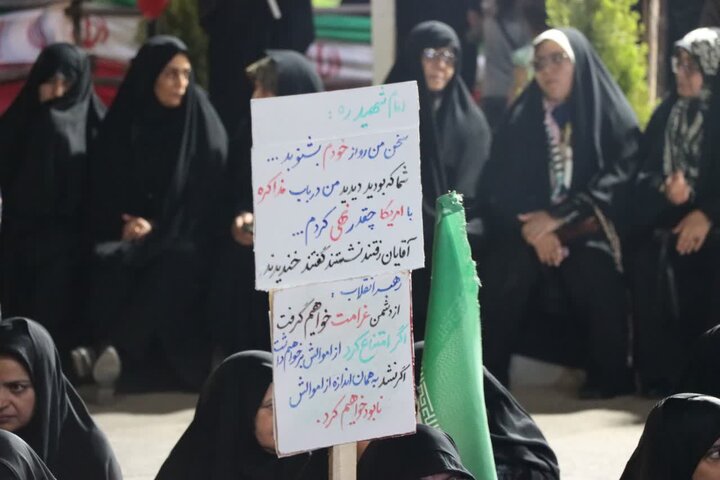 امام شهید ره:
سخن من رو از خودم بشنوید...
شما که بودید دیدید من در باب مذاکره
با امریکا چقدر نهی کردم...
آقایان رفتند نشستند گفتند خندیدند
رهبر انقلاب:
از دشمن غرامت خواهیم گرفت
اگر امتناع کرد از اموالش برخواهیم داشت
اگر نشد به همان اندازه از اموالش
نابود خواهیم کرد.